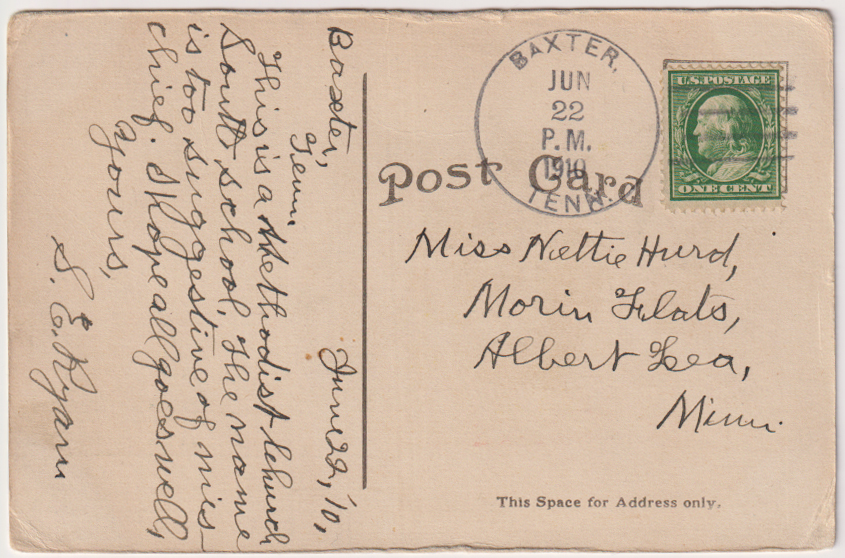 Baxter,
Tenn. June 22, '10,
This is a Methodist Church
South school. The name
is too suggestive of mis-
chief. I hope all goes well,
Yours,
S. E. Ryan
Post Card
BAXTER,
JUN
22
P.M.
1910
TENN.
U.S. POSTAGE
ONE CENT
Miss Nettie Hurd,
Morin Flats,
Albert Lea,
Minn.
This Space for Address only.